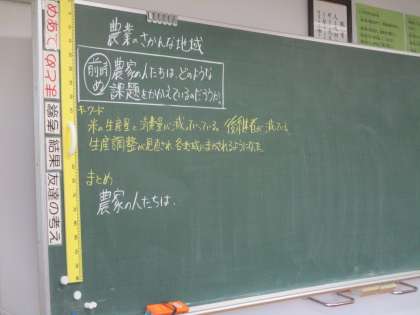 農業のさかんな地域
前時
め
農家の人たちは、どのような
課題をかかえているのだろうか。
キーワード
米の生産量と消費量が減っている。後継者が減っている
生産調整が見直され、各地域にまかされるようになった
まとめ
農家の人たちは、
めあて
結果
友達の考え